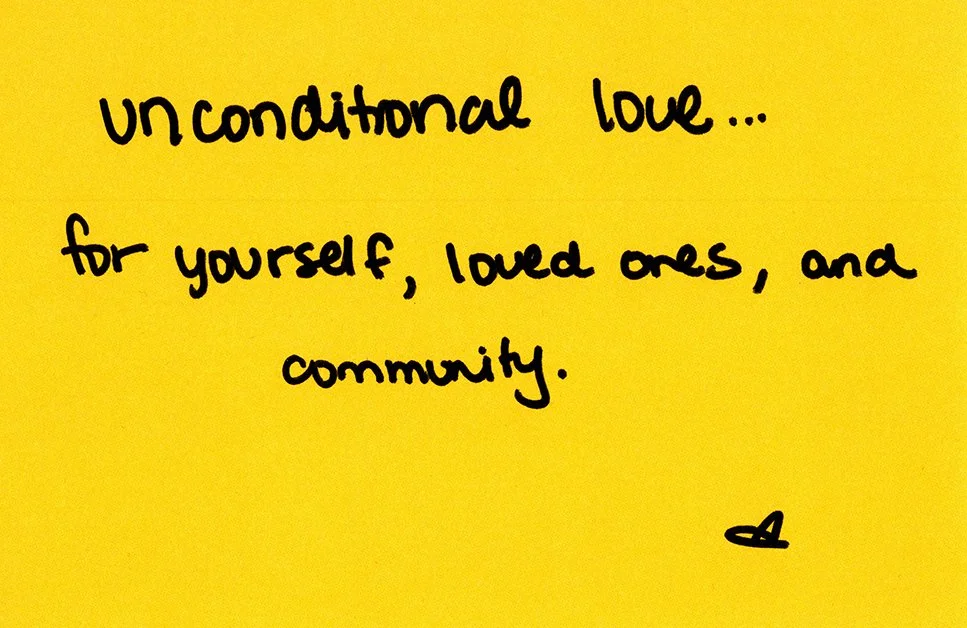 unconditional love...
for yourself, loved ones, and
community.